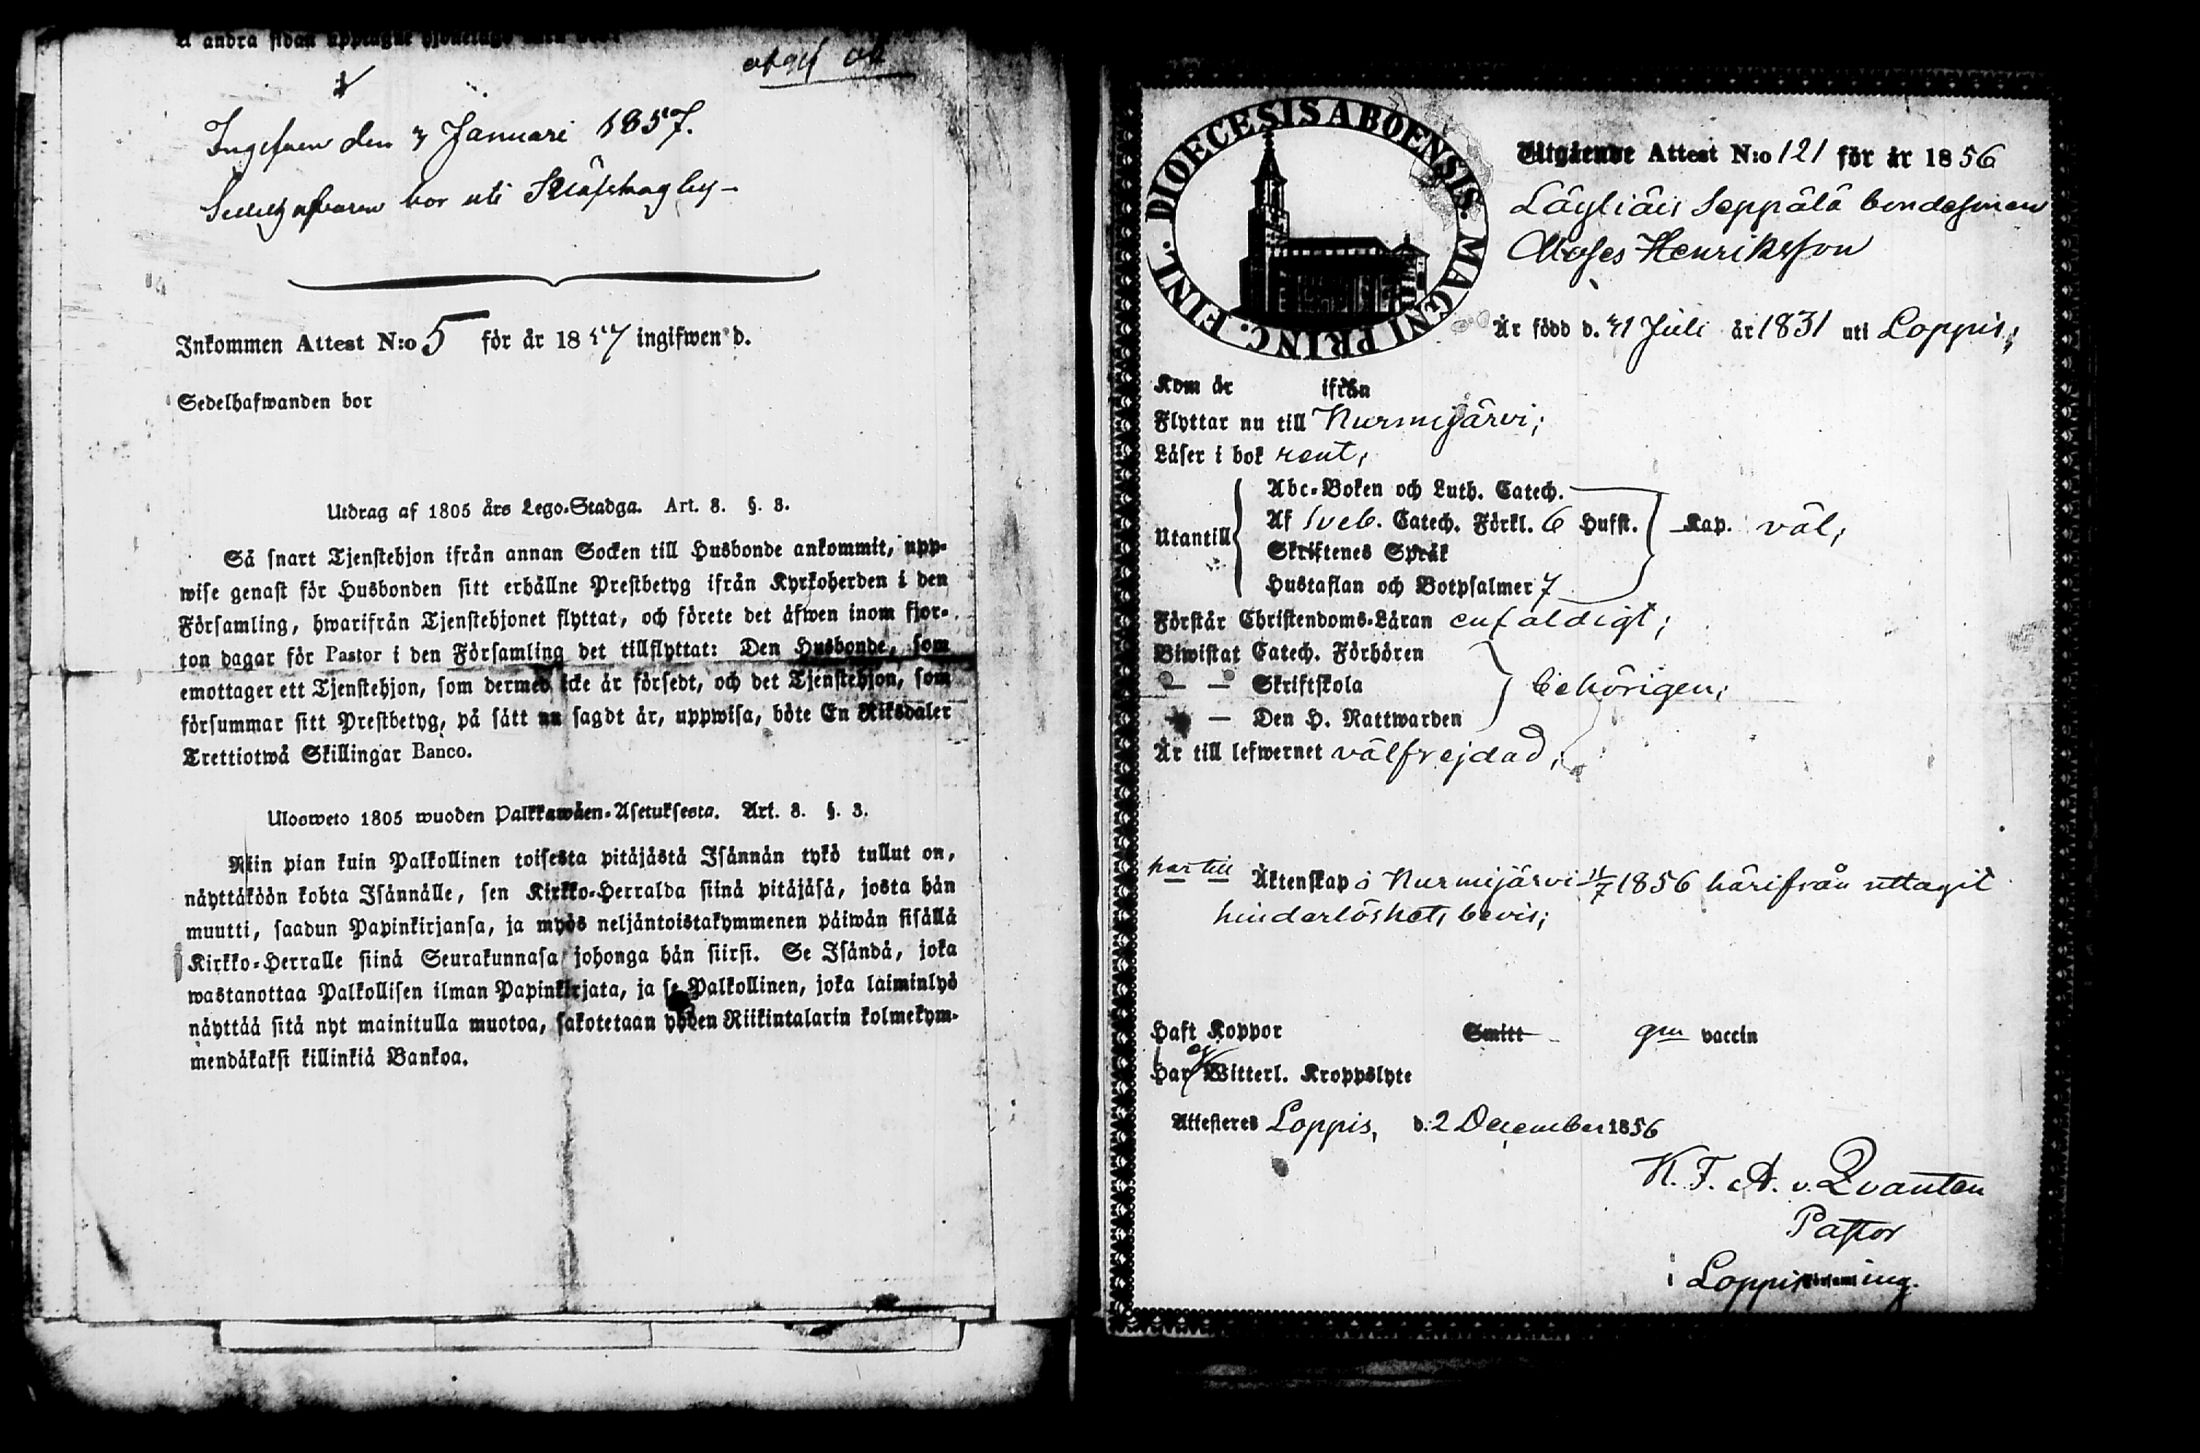 Å andra sidan
Ingifven den 3 Januari 1857.
Sedelhafvaren bor uti
Inkommen Attest N:o 5 för år 1857 ingifwen d.
Sedelhafwanden bor
Utdrag af 1805 års Lego-Stadga. Art. 8. §. 3.
Så snart Tjenstehjon ifrån annan Socken till Husbonde ankommit, upp-
wise genast för Husbonden sitt erhållne Prestbetyg ifrån Kyrkoherden i den
Församling, hwarifrån Tjenstehjonet flyttat, och förete det äfwen inom fjor-
ton dagar för Pastor i den Församling det tillflyttat: Den Husbonde, som
emottager ett Tjenstehjon, som dermed icke är försedt, och det Tjenstehjon, som
försummar sitt Prestbetyg, på sätt nu sagdt är, uppwisa, böte En Riksdaler
Trettiotwå Skillingar Banco.
Ulosweto 1805 wuoden Palkkawäen-Asetuksesta. Art. 8. §. 3.
Niin pian kuin Palkollinen toisesta pitäjästä Isännän tykö tullut on,
näyttäköön kohta Isännälle, sen Kirkko-Herralda siinä pitäjäsä, josta hän
muutti, saadun Papinkirjansa, ja myös neljäntoistakymmenen päiwän sisällä
Kirkko-Herralle siinä Seurakunnasa johonga hän siirsi. Se Isändä, joka
wastanottaa Palkollisen ilman Papinkirjata, ja se Palkollinen, joka laiminlyö
näyttää sitä nyt mainitulla muotoa, sakotetaan yhden Riikintalarin kolmekym-
mendäkaksi killinkiä Bankoa.
DIOECESIS ABOENSIS. MAGNI PRINC. FINL.
Utgående Attest N:o 121 för år 1856
Läyliäis Seppälä bondesonen
Moses Henriksson
Är född d. 31 Juli år 1831 uti Loppis;
Kom år ifrån
Flyttar nu till Nurmijärvi;
Läser i bok rent,
Abc-Boken och Luth. Catech.
Utantill Af Sveb. Catech. Förkl. 6 Hufst. Kap. väl;
Skriftenes Språk
Hustaflan och Botpsalmer 7
Förstår Christendoms-Läran enfaldigt;
Biwistat Catech. Förhören
— — Skriftskola behörigen;
— — Den H. Nattwarden
Är till lefwernet välfrejdad;
har till Äktenskap i Nurmijärvi 11/7 1856 härifrån uttagit
hinderlöshets bevis;
Haft Koppor Smitt gm vaccin
Har ej Witterl. Kroppslyte
Attesteres Loppis, d. 2 December 1856
K. F. A. v. Qvanten
Pastor
i Loppis Församling.